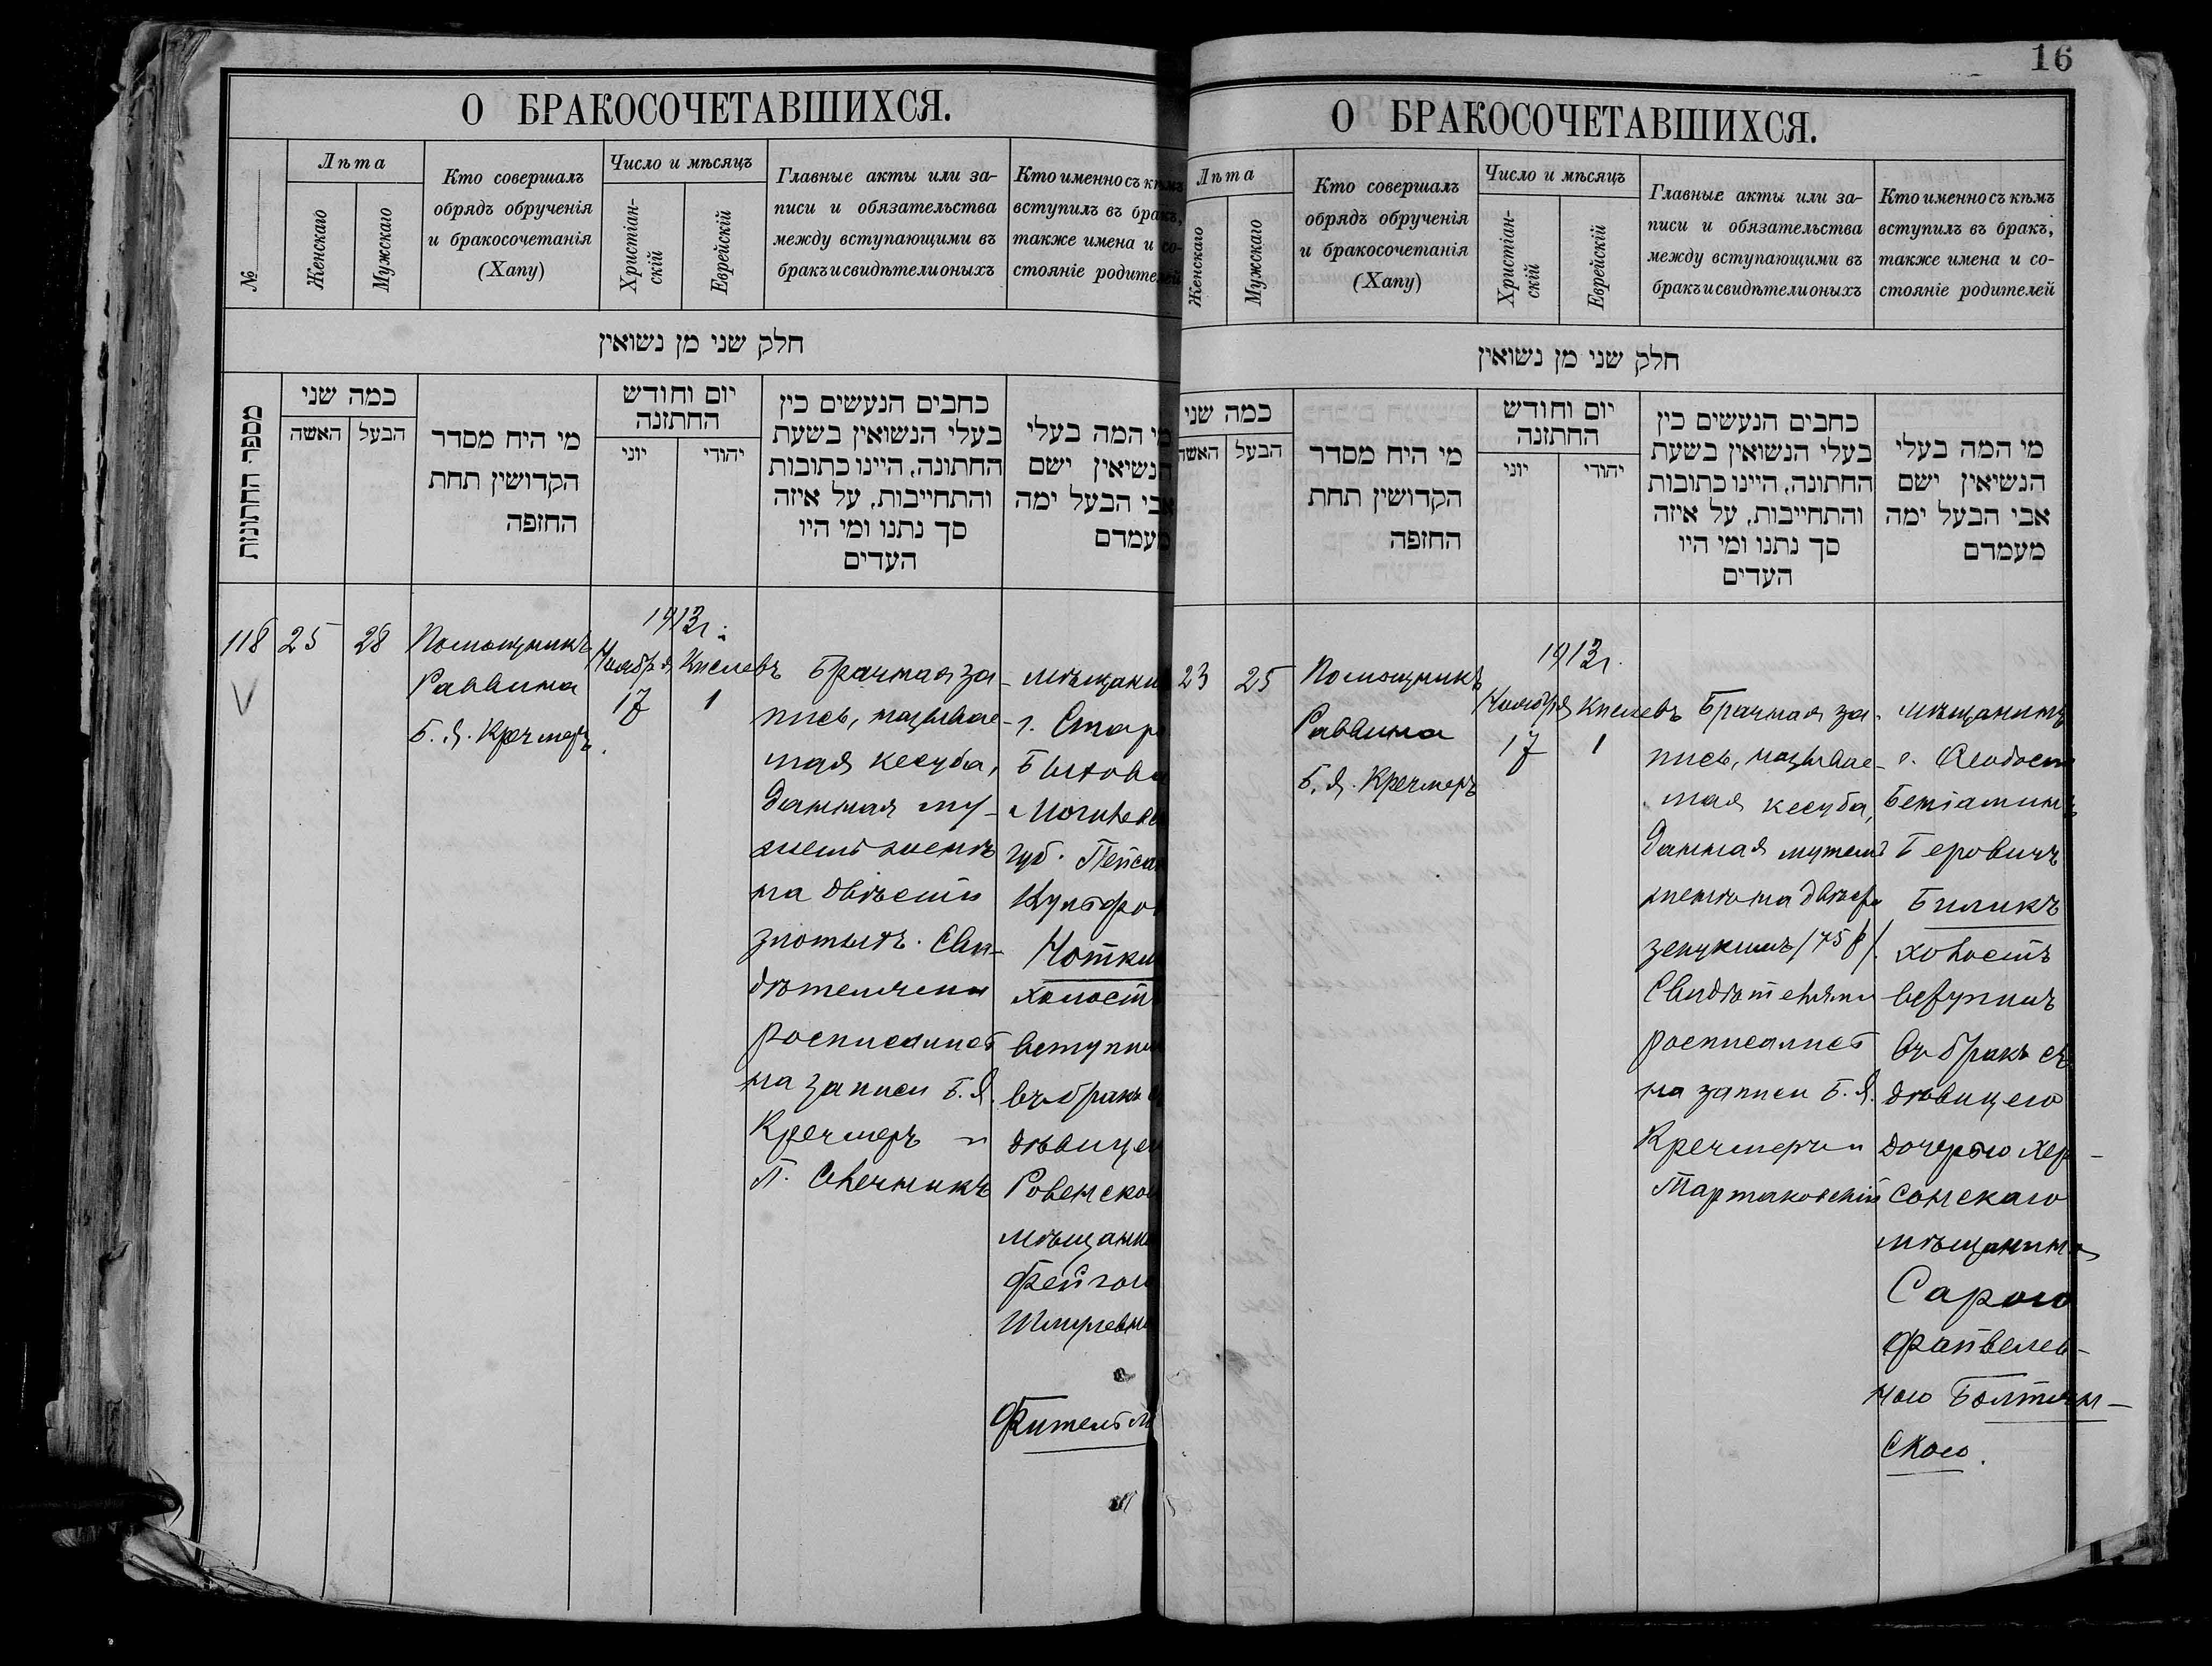 О БРАКОСОЧЕТАВШИХСЯ.
№
Лѣта
Женскаго
Мужскаго
Кто совершалъ
обрядъ обрученія
и бракосочетанія
(Хапу)
Число и мѣсяцъ
Христіан-
скій
Еврейскій
Главные акты или за-
писи и обязательства
между вступающими въ
бракъ и свидѣтели оныхъ
Кто именно съ кѣмъ
вступилъ въ бракъ,
также имена и со-
стояніе родителей
חלק שני מן נשואין
מספר החתונות
כמה שני
האשה
הבעל
מי היח מסדר
הקדושין תחת
החופה
יום וחודש
החתונה
יוני
יהודי
כחבים הנעשים כין
בעלי הנשואין בשעת
החתונה, היינו כתובות
והתחייבות, על איזה
סך נתנו ומי היו
העדים
מי המה בעלי
הנשיאין ישם
אבי הבעל ימה
מעמדם
118
25
28
Помощникъ
Раввина
Б. Я. Кречмеръ.
1913 г.
Ноября
17
Кислевъ
1
Брачная за-
пись, называе-
мая кесуба,
данная му-
жемъ женѣ
на двѣсти
злотыхъ. Сви-
дѣтелями
росписались
на записи Б. Я.
Кречмеръ и
П. Свечникъ
мѣщанин
г. Стар
Быхова
Могилев
губ. Пейса
Нотки
холостъ
вступил
въ бракъ
дѣвицею
Ровенской
мѣщанк
Фейгою
Шмулевн
Фительм
16
О БРАКОСОЧЕТАВШИХСЯ.
Лѣта
Женскаго
Мужскаго
Кто совершалъ
обрядъ обрученія
и бракосочетанія
(Хапу)
Число и мѣсяцъ
Христіан-
скій
Еврейскій
Главные акты или за-
писи и обязательства
между вступающими въ
бракъ и свидѣтели оныхъ
Кто именно съ кѣмъ
вступилъ въ бракъ,
также имена и со-
стояніе родителей
חלק שני מן נשואין
כמה שני
האשה
הבעל
מי היח מסדר
הקדושין תחת
החופה
יום וחודש
החתונה
יוני
יהודי
כחבים הנעשים כין
בעלי הנשואין בשעת
החתונה, היינו כתובות
והתחייבות, על איזה
סך נתנו ומי היו
העדים
מי המה בעלי
הנשיאין ישם
אבי הבעל ימה
מעמדם
23
25
Помощникъ
Раввина
Б. Я. Кречмеръ
1913 г.
Ноября
17
Кислевъ
1
Брачная за-
пись, называе-
мая кесуба,
данная мужемъ
женѣ на двѣсти
зекукимъ /75 р/.
Свидѣтелями
росписались
на записи Б. Я.
Кречмеръ и
Тартаковскій
мѣщанинъ
г.
Беніаминъ
Беровичъ
Биликъ
холостъ
вступилъ
въ бракъ съ
дѣвицею
дочерью Хер-
сонскаго
мѣщанина
Сарою
Файвелев-
ною Болтян-
скою.